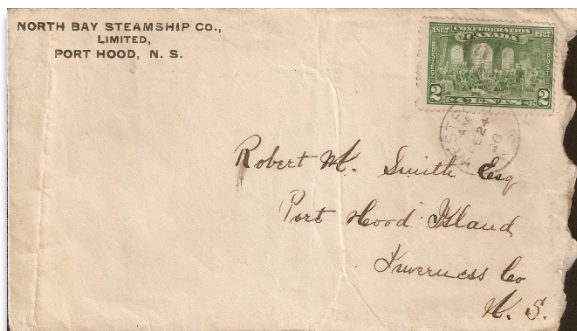 NORTH BAY STEAMSHIP CO.,
LIMITED,
PORT HOOD, N. S.
1867 CONFEDERATION 1927
CANADA
POSTES POST
2 CENTS 2
24
Robert M. Smith Esq
Port Hood Island
Inverness Co
N. S.